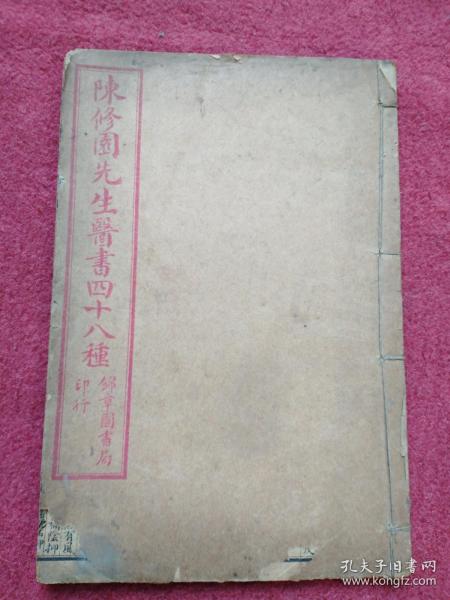 陳修園先生醫書四十八種
錦章圖書局
印行
孔夫子旧书网
www.kongfz.com